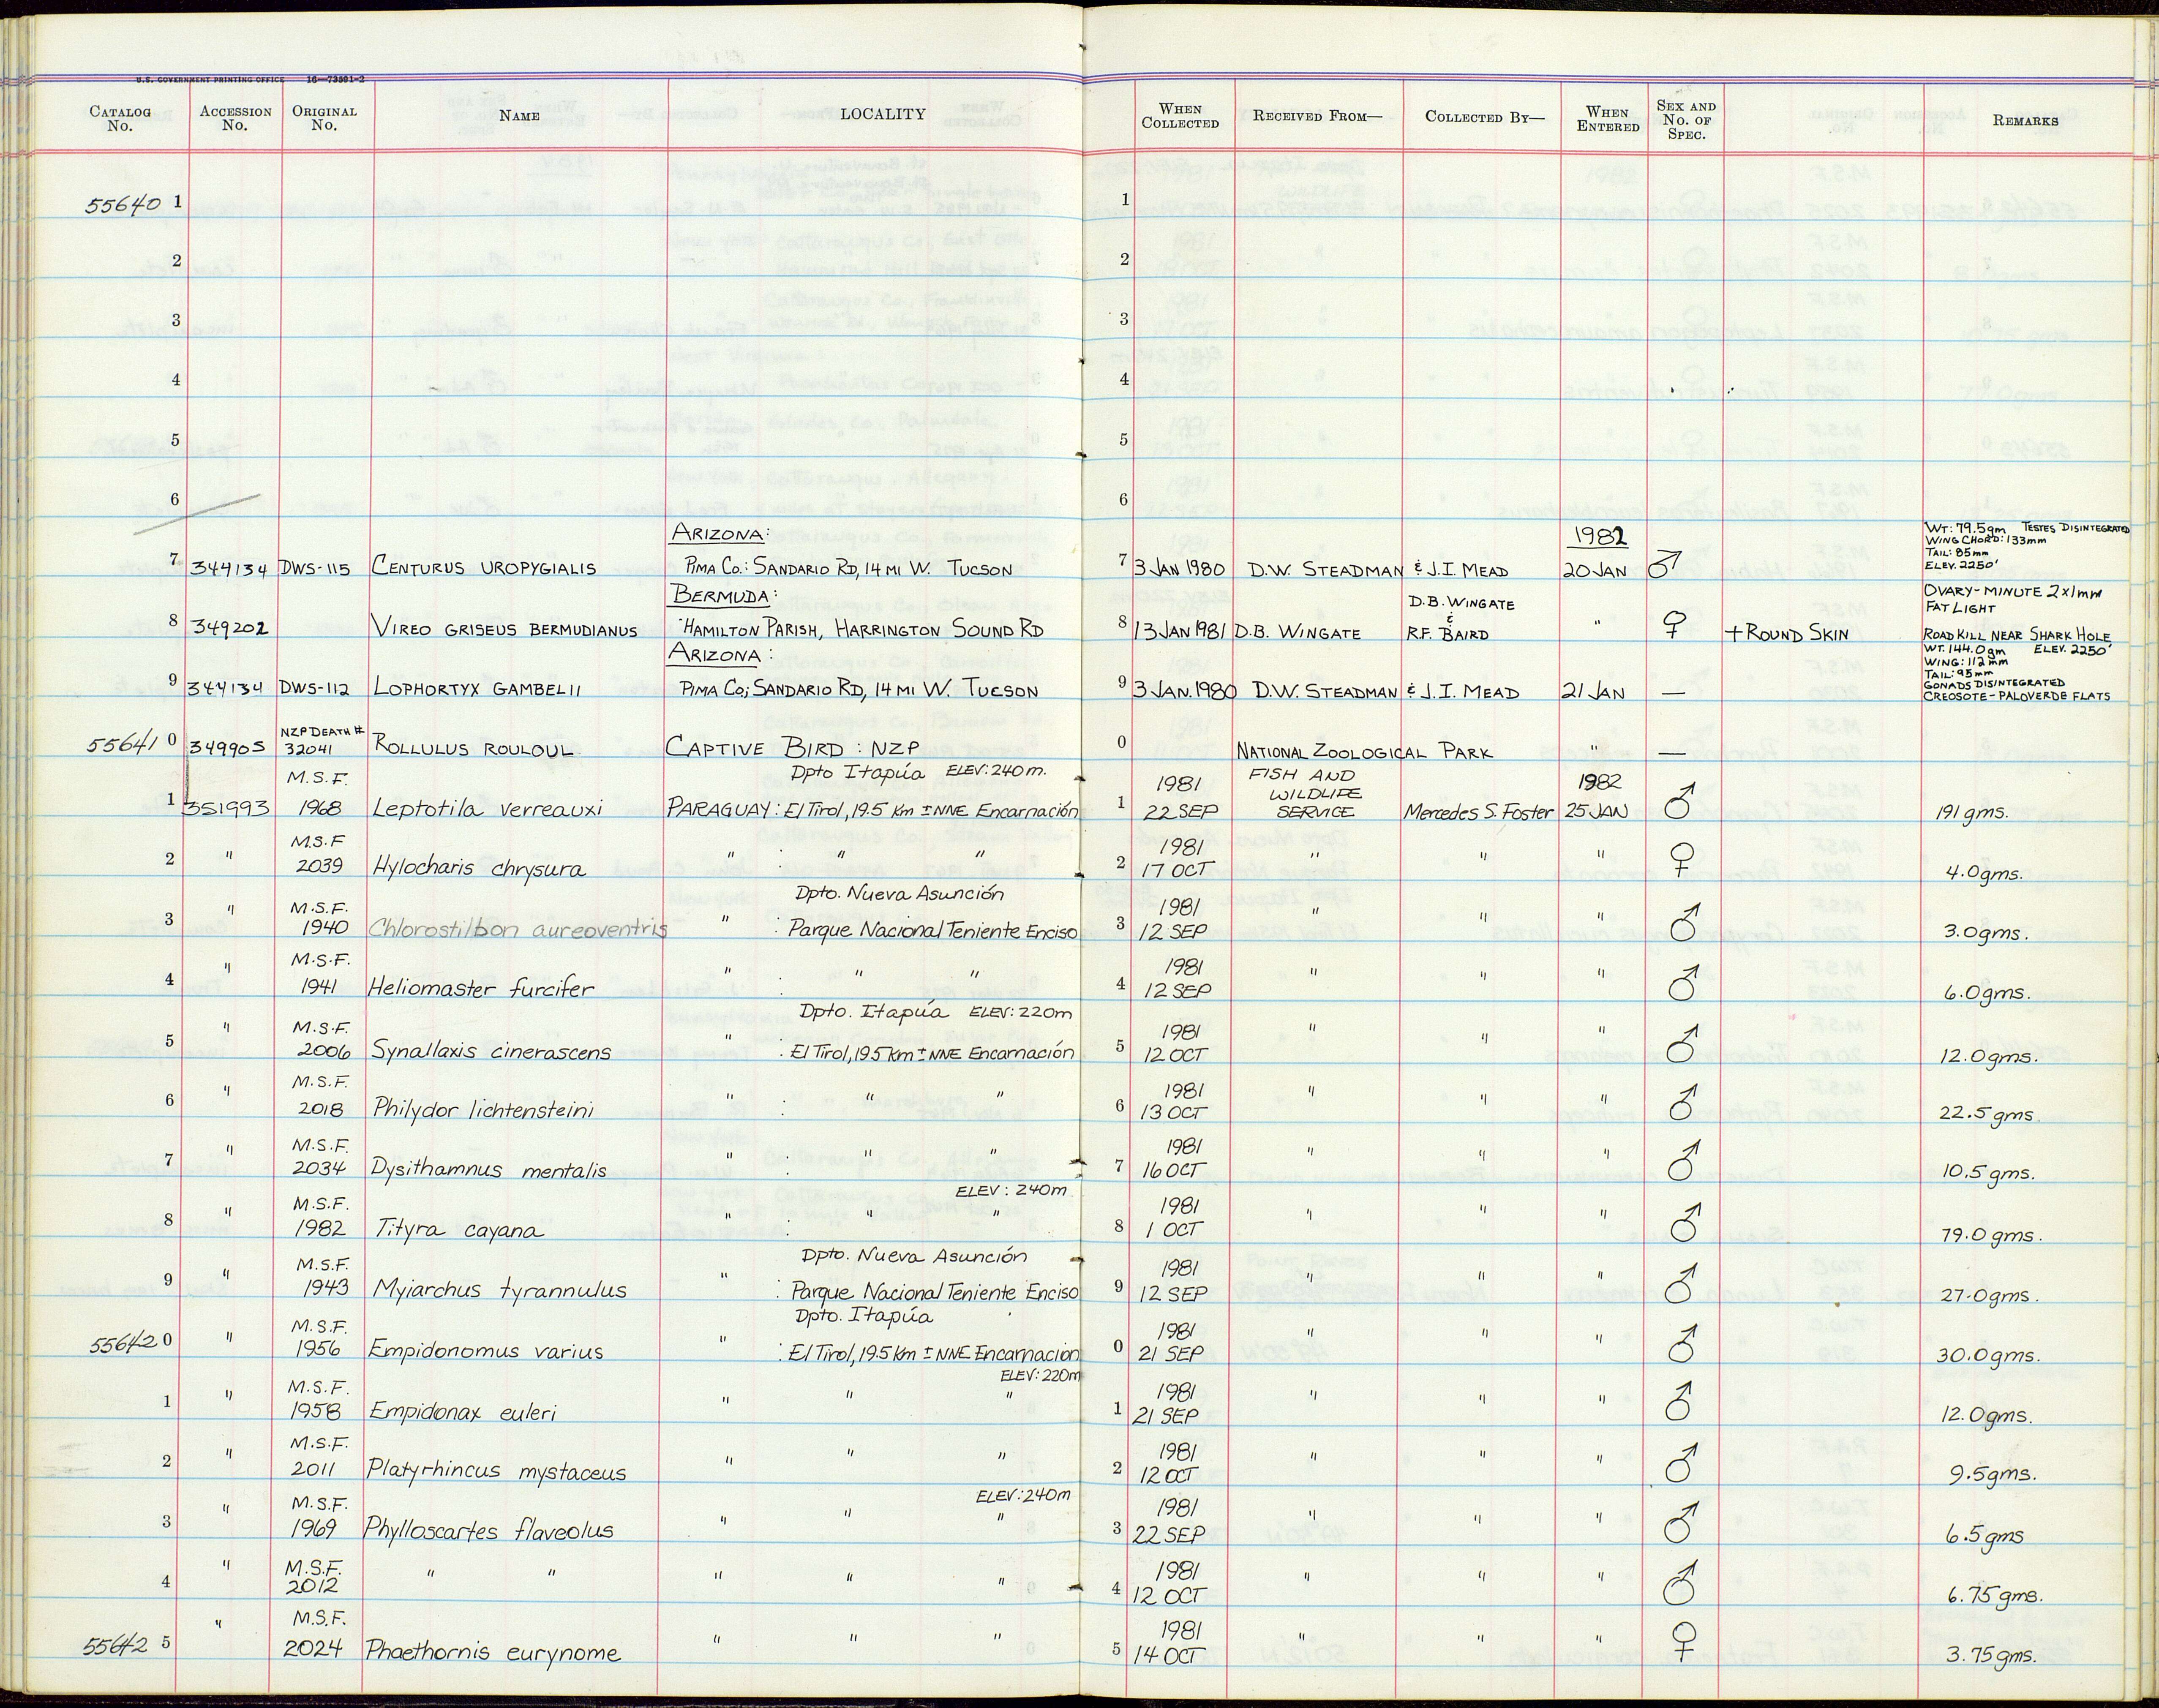 U.S. GOVERNMENT PRINTING OFFICE 16—73591-2
CATALOG No. ACCESSION No. ORIGINAL No. NAME LOCALITY WHEN COLLECTED RECEIVED FROM— COLLECTED BY— WHEN ENTERED SEX AND No. OF SPEC. REMARKS
55640 1 1
2 2
3 3
4 4
5 5
6 6
ARIZONA: 1982 WT: 79.5gm TESTES DISINTEGRATED
WING CHORD: 133mm
TAIL: 85mm
7 344134 DWS-115 CENTURUS UROPYGIALIS PIMA CO.: SANDARIO RD, 14 MI W. TUCSON 7 3 JAN 1980 D.W. STEADMAN & J.I. MEAD 20 JAN ♂ ELEV. 2250'
BERMUDA: D.B. WINGATE OVARY-MINUTE 2x1mm
& FAT LIGHT
8 349202 VIREO GRISEUS BERMUDIANUS HAMILTON PARISH, HARRINGTON SOUND RD 8 13 JAN 1981 D.B. WINGATE R.F. BAIRD " ♀ + ROUND SKIN ROAD KILL NEAR SHARK HOLE
ARIZONA: WT. 144.0gm ELEV. 2250'
WING: 112mm
TAIL: 95mm
9 344134 DWS-112 LOPHORTYX GAMBELII PIMA CO; SANDARIO RD, 14 MI W. TUCSON 9 3 JAN. 1980 D.W. STEADMAN & J.I. MEAD 21 JAN — GONADS DISINTEGRATED
CREOSOTE-PALOVERDE FLATS
NZP DEATH #
55641 0 349905 32041 ROLLULUS ROULOUL CAPTIVE BIRD : NZP 0 NATIONAL ZOOLOGICAL PARK " —
M.S.F. Dpto Itapúa ELEV: 240 m. 1981 FISH AND WILDLIFE 1982
1 351993 1968 Leptotila verreauxi PARAGUAY: El Tirol, 19.5 Km ± NNE Encarnación 1 22 SEP SERVICE Mercedes S. Foster 25 JAN ♂ 191 gms.
M.S.F 1981
2 " 2039 Hylocharis chrysura " : " " 2 17 OCT " " " ♀ 4.0 gms.
M.S.F. Dpto. Nueva Asunción 1981
3 " 1940 Chlorostilbon aureoventris " : Parque Nacional Teniente Enciso 3 12 SEP " " " ♂ 3.0 gms.
M.S.F. 1981
4 " 1941 Heliomaster furcifer " : " " 4 12 SEP " " " ♂ 6.0 gms.
M.S.F. Dpto. Itapúa ELEV: 220m 1981
5 " 2006 Synallaxis cinerascens " : El Tirol, 19.5 Km ± NNE Encarnación 5 12 OCT " " " ♂ 12.0 gms.
M.S.F. 1981
6 " 2018 Philydor lichtensteini " : " " 6 13 OCT " " " ♂ 22.5 gms.
M.S.F. 1981
7 " 2034 Dysithamnus mentalis " : " " 7 16 OCT " " " ♂ 10.5 gms.
M.S.F. ELEV: 240m 1981
8 " 1982 Tityra cayana " : " " 8 1 OCT " " " ♂ 79.0 gms.
M.S.F. Dpto. Nueva Asunción 1981
9 " 1943 Myiarchus tyrannulus " : Parque Nacional Teniente Enciso 9 12 SEP " " " ♂ 27.0 gms.
M.S.F. Dpto. Itapúa 1981
55642 0 " 1956 Empidonomus varius " : El Tirol, 19.5 Km ± NNE Encarnación 0 21 SEP " " " ♂ 30.0 gms.
M.S.F. ELEV: 220m 1981
1 " 1958 Empidonax euleri " " " 1 21 SEP " " " ♂ 12.0 gms.
M.S.F. 1981
2 " 2011 Platyrhincus mystaceus " " " 2 12 OCT " " " ♂ 9.5 gms.
M.S.F. ELEV: 240m 1981
3 " 1969 Phylloscartes flaveolus " " " 3 22 SEP " " " ♂ 6.5 gms
M.S.F. 1981
4 " 2012 " " " " " 4 12 OCT " " " ♂ 6.75 gms.
M.S.F. 1981
55642 5 " 2024 Phaethornis eurynome " " " 5 14 OCT " " " ♀ 3.75 gms.